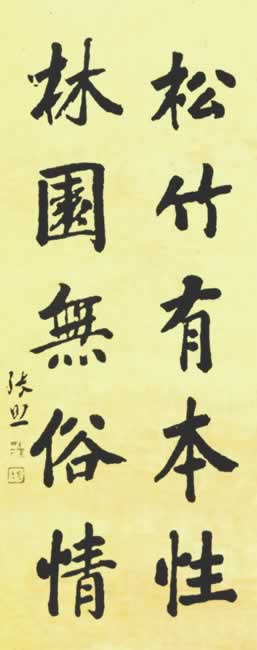 松竹有本性
林園無俗情
张照